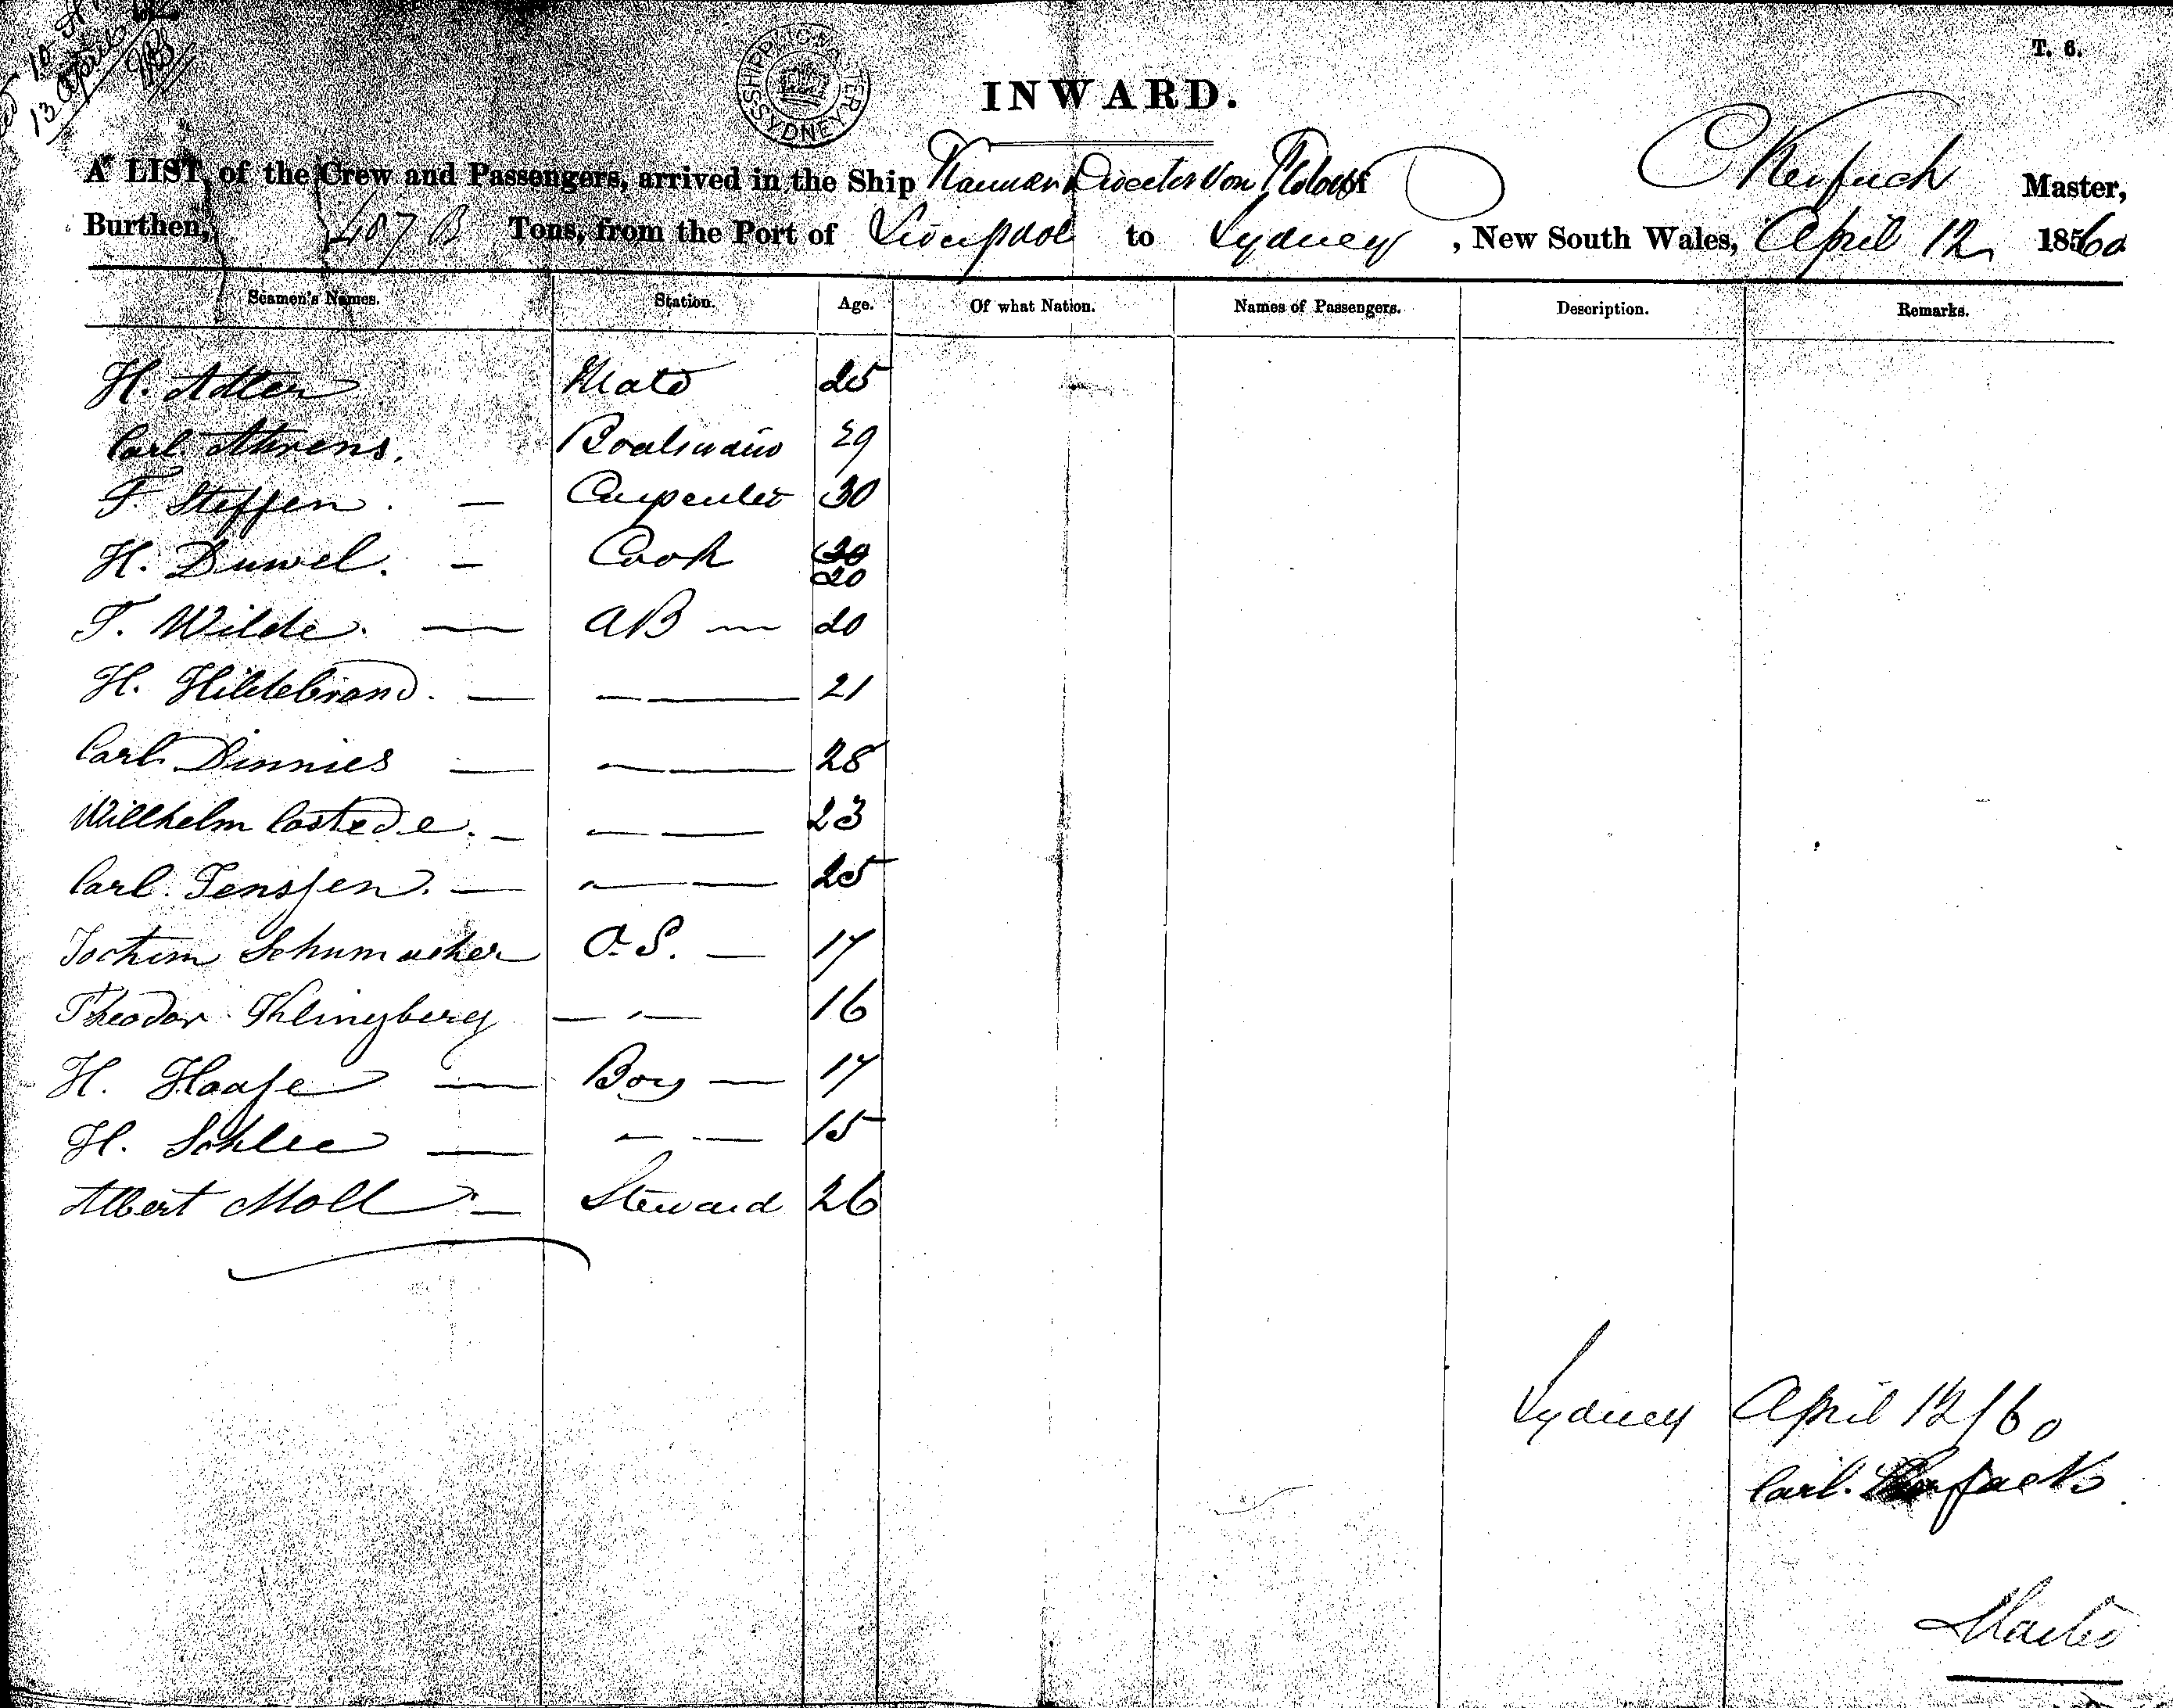 13 April
T. 6.
SHIPPING MASTER SYDNEY
INWARD.
A LIST, of the Crew and Passengers, arrived in the Ship Von of C Master,
Burthen, 407 B Tons, from the Port of Liverpool to Sydney, New South Wales, April 12 1860
Seamen's Names. Station. Age. Of what Nation. Names of Passengers. Description. Remarks.
H. Adler Mate 25
Carl Ahrens. Boatswain 29
F. Steffen. — Carpenter 30
H. Duwel. — Cook 20
F. Wilde. — AB — 20
H. Hildebrand. — — — 21
Carl Dinnies — — — 28
Willhelm Costede. — — — 23
Carl. Jenssen. — — — 25
Jochim Schumacher O.S. — 17
Theodor Klingberg — — 16
H. Haase — Boy — 17
H. Schlee — — — 15
Albert Moll — Steward 26
Sydney April 12/60
Carl.
Master